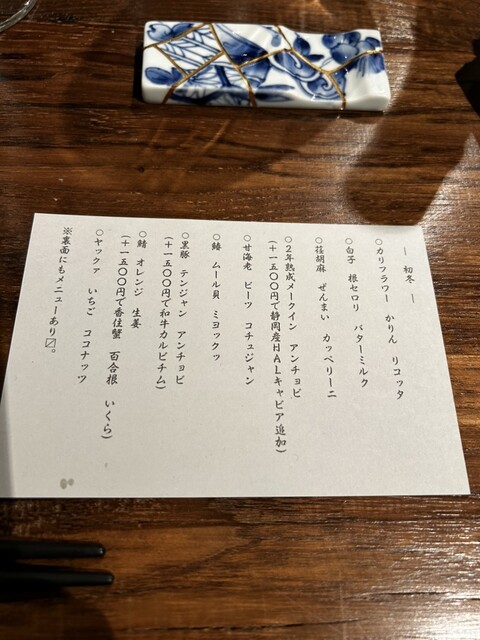 ― 初冬 ―
○カリフラワー かりん リコッタ
○白子 根セロリ バターミルク
○筏胡麻 ぜんまい カッペリーニ
○2年熟成メークイン アンチョビ
(+一五〇〇円で静岡産HALキャビア追加)
○甘海老 ビーツ コチュジャン
○鰆 ムール貝 ミヨックッ
○黒豚 テンジャン アンチョビ
(+一五〇〇円で和牛カルビチム)
○鯖 オレンジ 生姜
(+一五〇〇円で香住蟹 百合根 いくら)
○ヤックァ いちご ココナッツ
※裏面にもメニューあり〼。